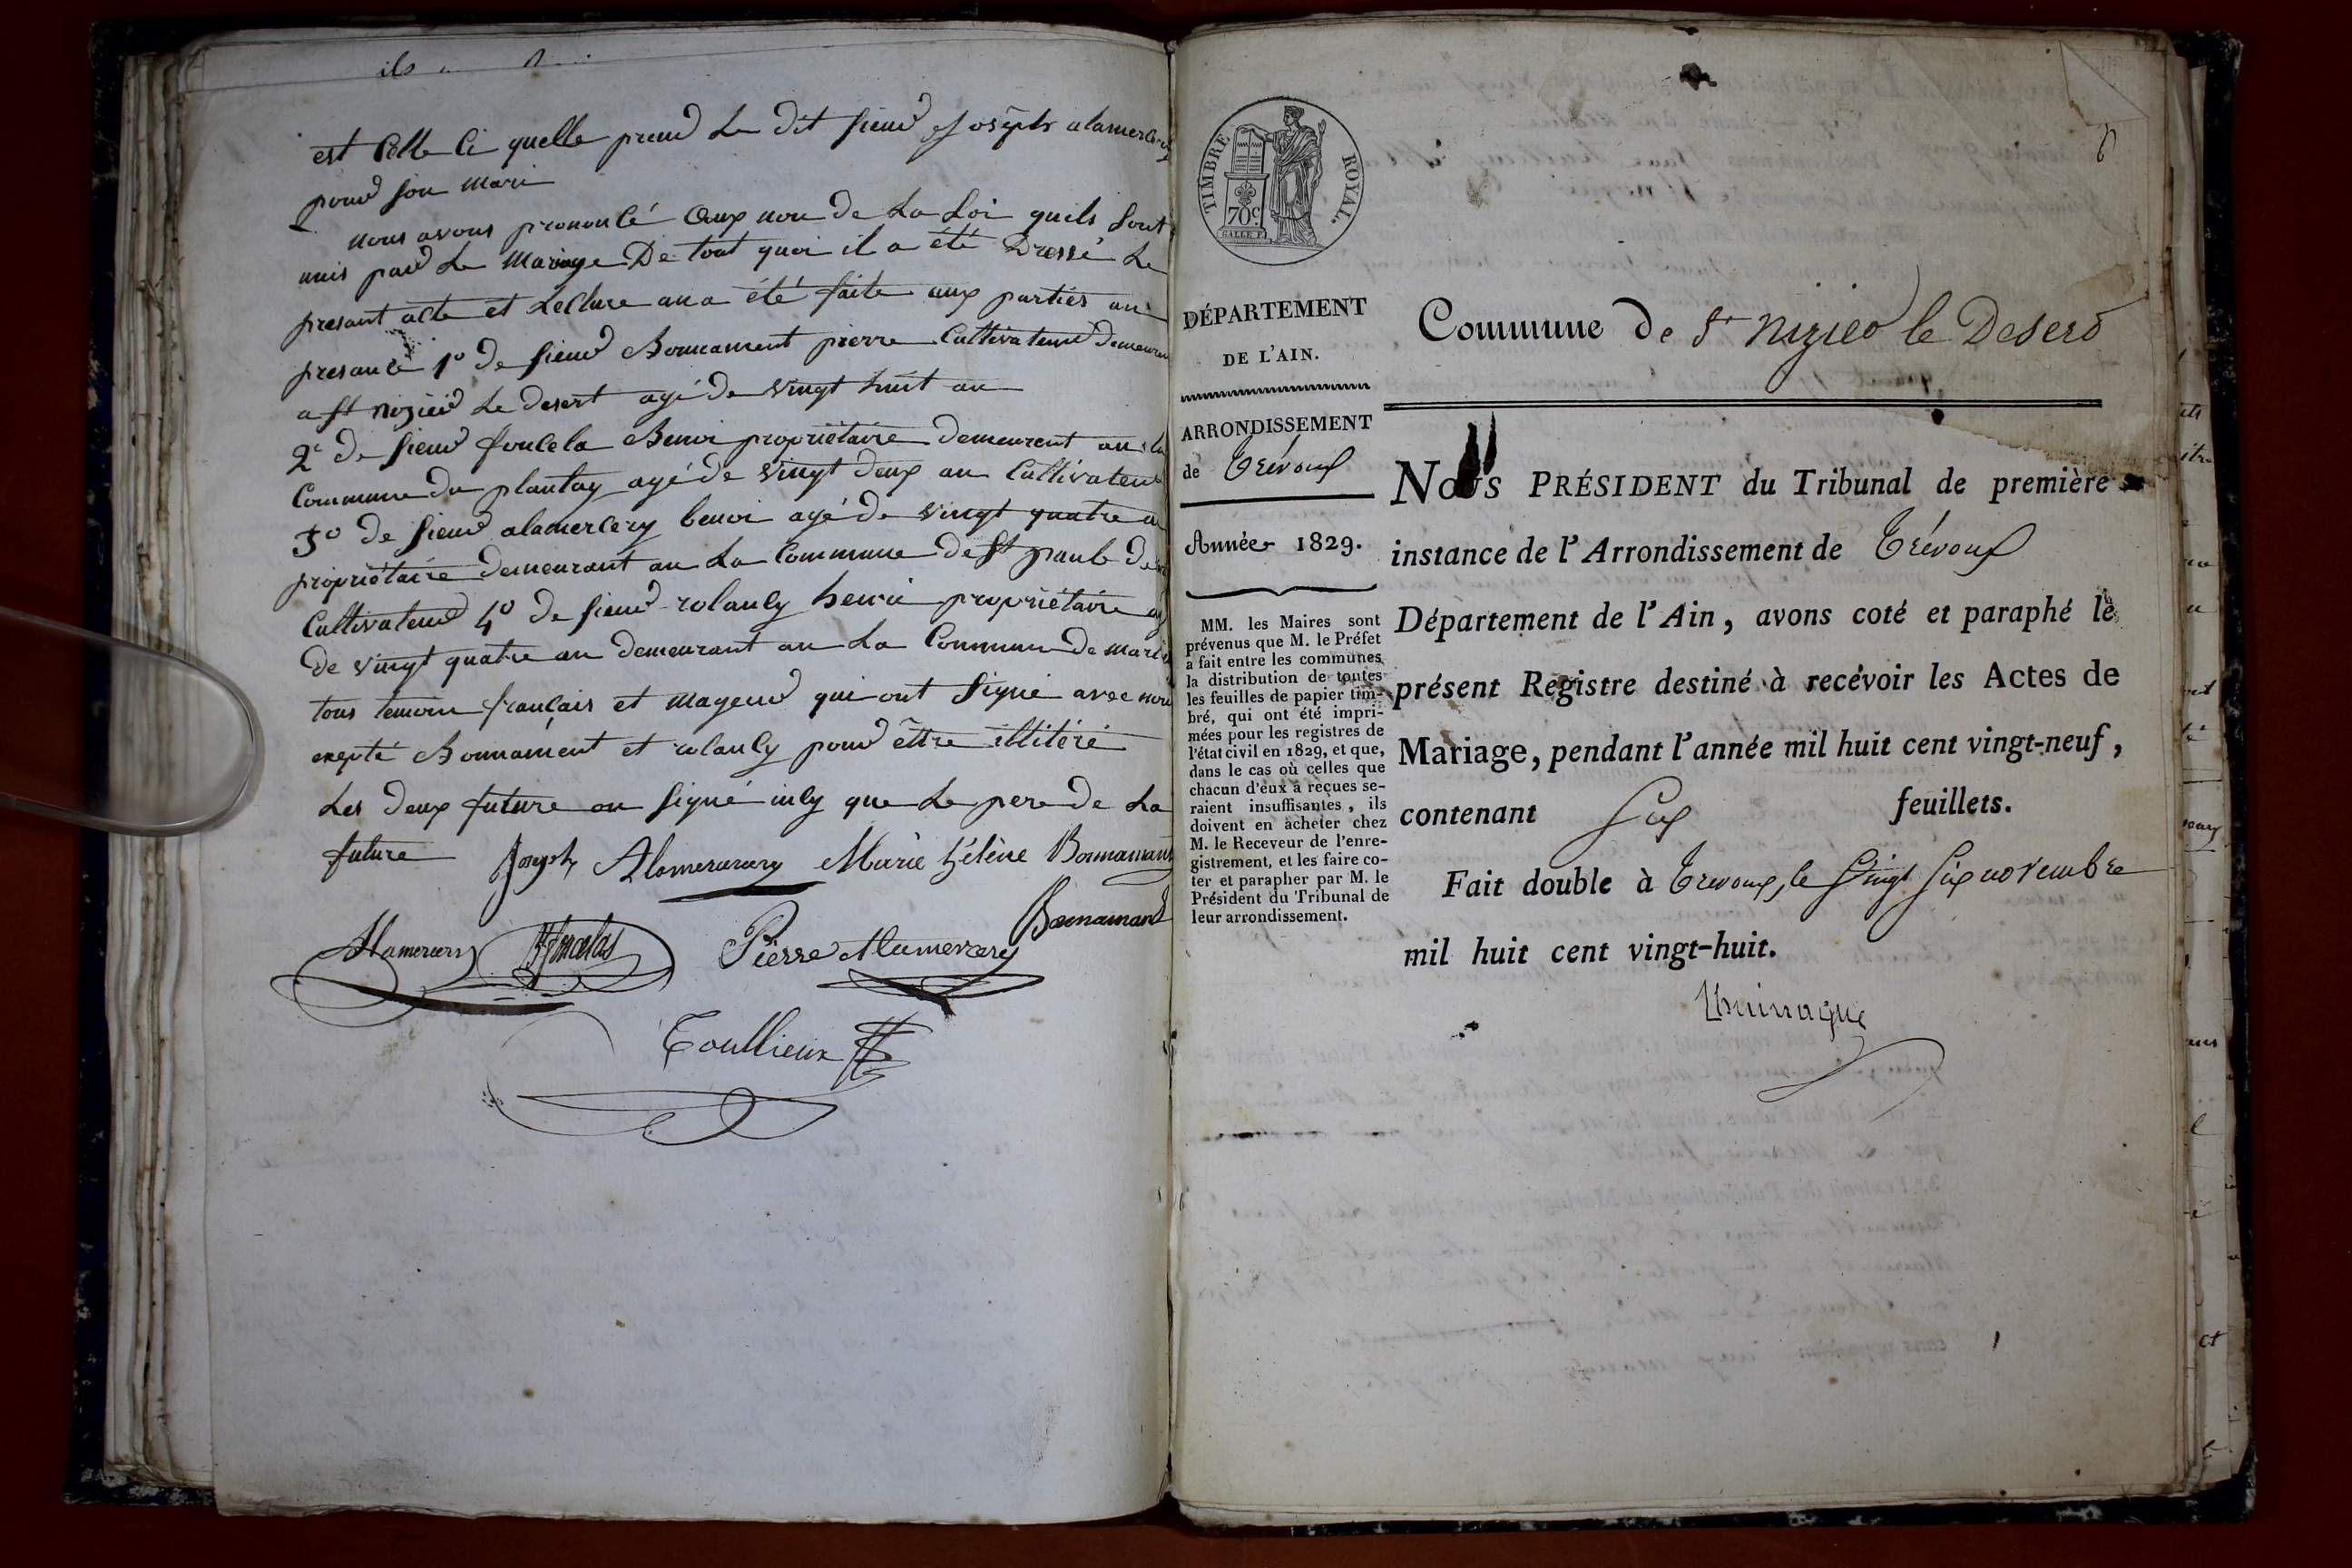 est Celle Ci quelle prend Le dit sieur joseph alamercery
pour son mari
nous avons prononcé aux nom de La Loi quils sont
unis par Le Mariage De tout quoi il a été Dressé Le
presant acte et Lecture an a été faite aux parties an
presance 1º de sieur Bonnament pierre Cultivateur demeurant
a st nizier Le desert agé de vingt huit an
2º de sieur foucela Benoi propriétaire demeurent an la
Commune du plantay agé de vingt deux an Cultivateur
3º de sieur alamercery benoi agé de vingt quatre an
propriétaire demeurant an La Commune de st paul De
Cultivateur 4º de sieur rolandy henri propriétaire agé
de vingt quatre an demeurant an La Commune de
tous temoin français et mageur qui ont signé avec nous
exepté Bonnament et rolandy pour être illitéré
Les deux future on signé incy que Le pere de La
future Joseph Alamercery Marie hélène Bonnamant
Bonnamant
Alamercery Bt foucelas Pierre Alamercery
Toullieux
TIMBRE ROYAL.
70 c
DÉPARTEMENT
DE L'AIN.
ARRONDISSEMENT
de Trévoux
Année 1829.
MM. les Maires sont
prévenus que M. le Préfet
a fait entre les communes
la distribution de toutes
les feuilles de papier tim-
bré, qui ont été impri-
mées pour les registres de
l'état civil en 1829, et que,
dans le cas où celles que
chacun d'eux a reçues se-
raient insuffisantes, ils
doivent en acheter chez
M. le Receveur de l'enre-
gistrement, et les faire co-
ter et parapher par M. le
Président du Tribunal de
leur arrondissement.
Commune de St Nizier le Desert
NOUS PRÉSIDENT du Tribunal de première
instance de l'Arrondissement de Trévoux
Département de l'Ain, avons coté et paraphé le
présent Registre destiné à recevoir les Actes de
Mariage, pendant l'année mil huit cent vingt-neuf,
contenant Six feuillets.
Fait double à Trevoux, le Vingt Six novembre
mil huit cent vingt-huit.